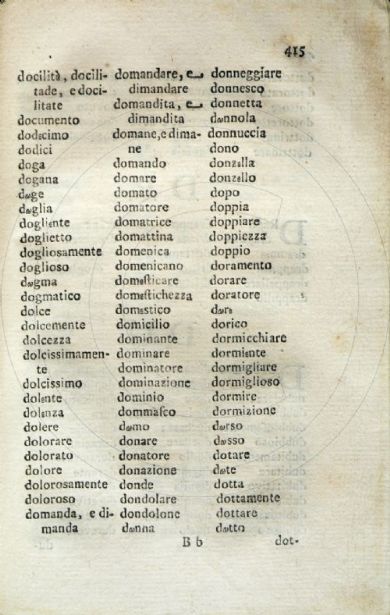 415
docilità, docili-
tade, e doci-
litate
documento
dodεcimo
dodici
doga
dogana
dωge
dωglia
dogliεnte
doglietto
dogliosamente
doglioso
dωgma
dogmatico
dolce
dolcemente
dolcezza
dolcissimamen-
te
dolcissimo
dolεnte
dolεnza
dolere
dolorare
dolorato
dolore
dolorosamente
doloroso
domanda, e di-
manda
domandare, e
dimandare
domandita, e
dimandita
domane, e dima-
ne
domando
domare
domato
domatore
domatrice
domattina
domenica
domenicano
domεſticare
domeſtichezza
domεſtico
domicilio
dominante
dominare
dominatore
dominazione
dominio
dommaſco
dωmo
donare
donatore
donazione
donde
dondolare
dondolone
dωnna
donneggiare
donnesco
donnetta
dωnnola
donnuccia
dono
donzεlla
donzεllo
dopo
doppia
doppiare
doppiezza
doppio
doramento
dorare
doratore
dωre
dorico
dormicchiare
dormiεnte
dormigliare
dormiglioso
dormire
dormizione
dωrso
dωsso
dotare
dωte
dotta
dottamente
dottare
dωtto
B b
dot-